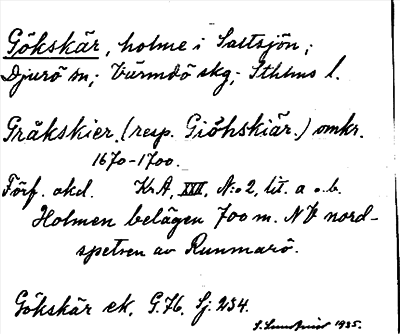 Gökskär, holme i Saltsjön;
Djurö sn; Värmdö skg; Sthlms l.
Gråkskier. (resp. Giöhskiär.) omkr.
1670-1700.
Förf. okd. KrA, XXX, N:o 2, lit. a o. b.
Holmen belägen 700 m. NV nord-
spetsen av Runmarö.
Gökskär ek. G.K. Sj. 234.
1935.